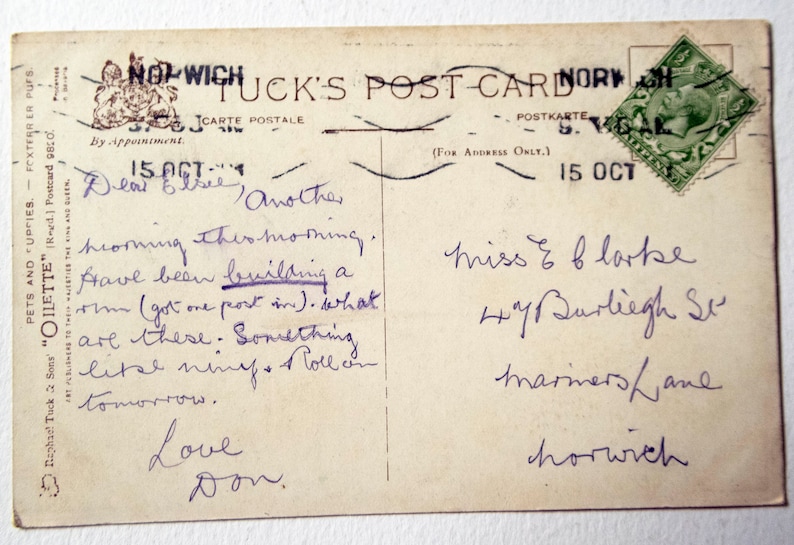 NORWICH
TUCK'S POST CARD
NORWICH
CARTE POSTALE
POSTKARTE
By Appointment.
(FOR ADDRESS ONLY.)
15 OCT
15 OCT
Dear Elsie, Another
morning this morning.
Have been building a
run (got one post in). What
are these. Something
like ninf. Roll on
tomorrow.
Love
Don.
Miss E Clarke
47 Burliegh St
Mariners Lane
Norwich
PETS AND PUPPIES. — FOXTERRIER PUPS.
Raphael Tuck & Sons' "OILETTE" [Regd.] Postcard 9820.
ART PUBLISHERS TO THEIR MAJESTIES THE KING AND QUEEN.
Processed
in Bavaria